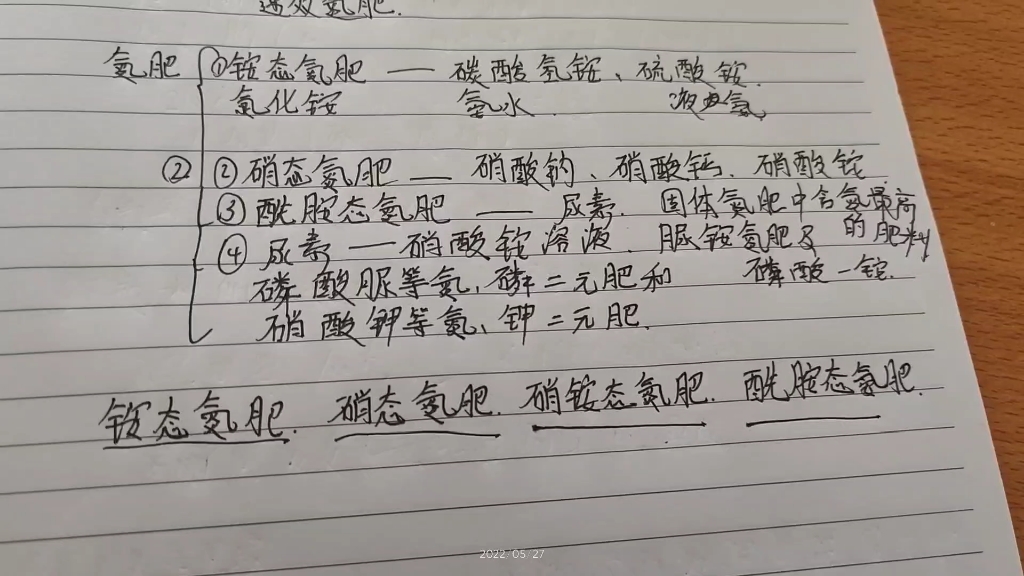 速效氮肥.
氮肥 ①铵态氮肥 — 碳酸氢铵、硫酸铵.
氯化铵 氨水. 液氨
② ②硝态氮肥 — 硝酸钠、硝酸钙、硝酸铵
③ 酰胺态氮肥 — 尿素. 固体氮肥中含氮最高的肥料
④ 尿素 — 硝酸铵溶液. 脲铵氮肥及
磷酸脲等氮、磷二元肥和 磷酸一铵.
硝酸钾等氮、钾二元肥.
铵态氮肥. 硝态氮肥. 硝铵态氮肥. 酰胺态氮肥.
2022 05 27